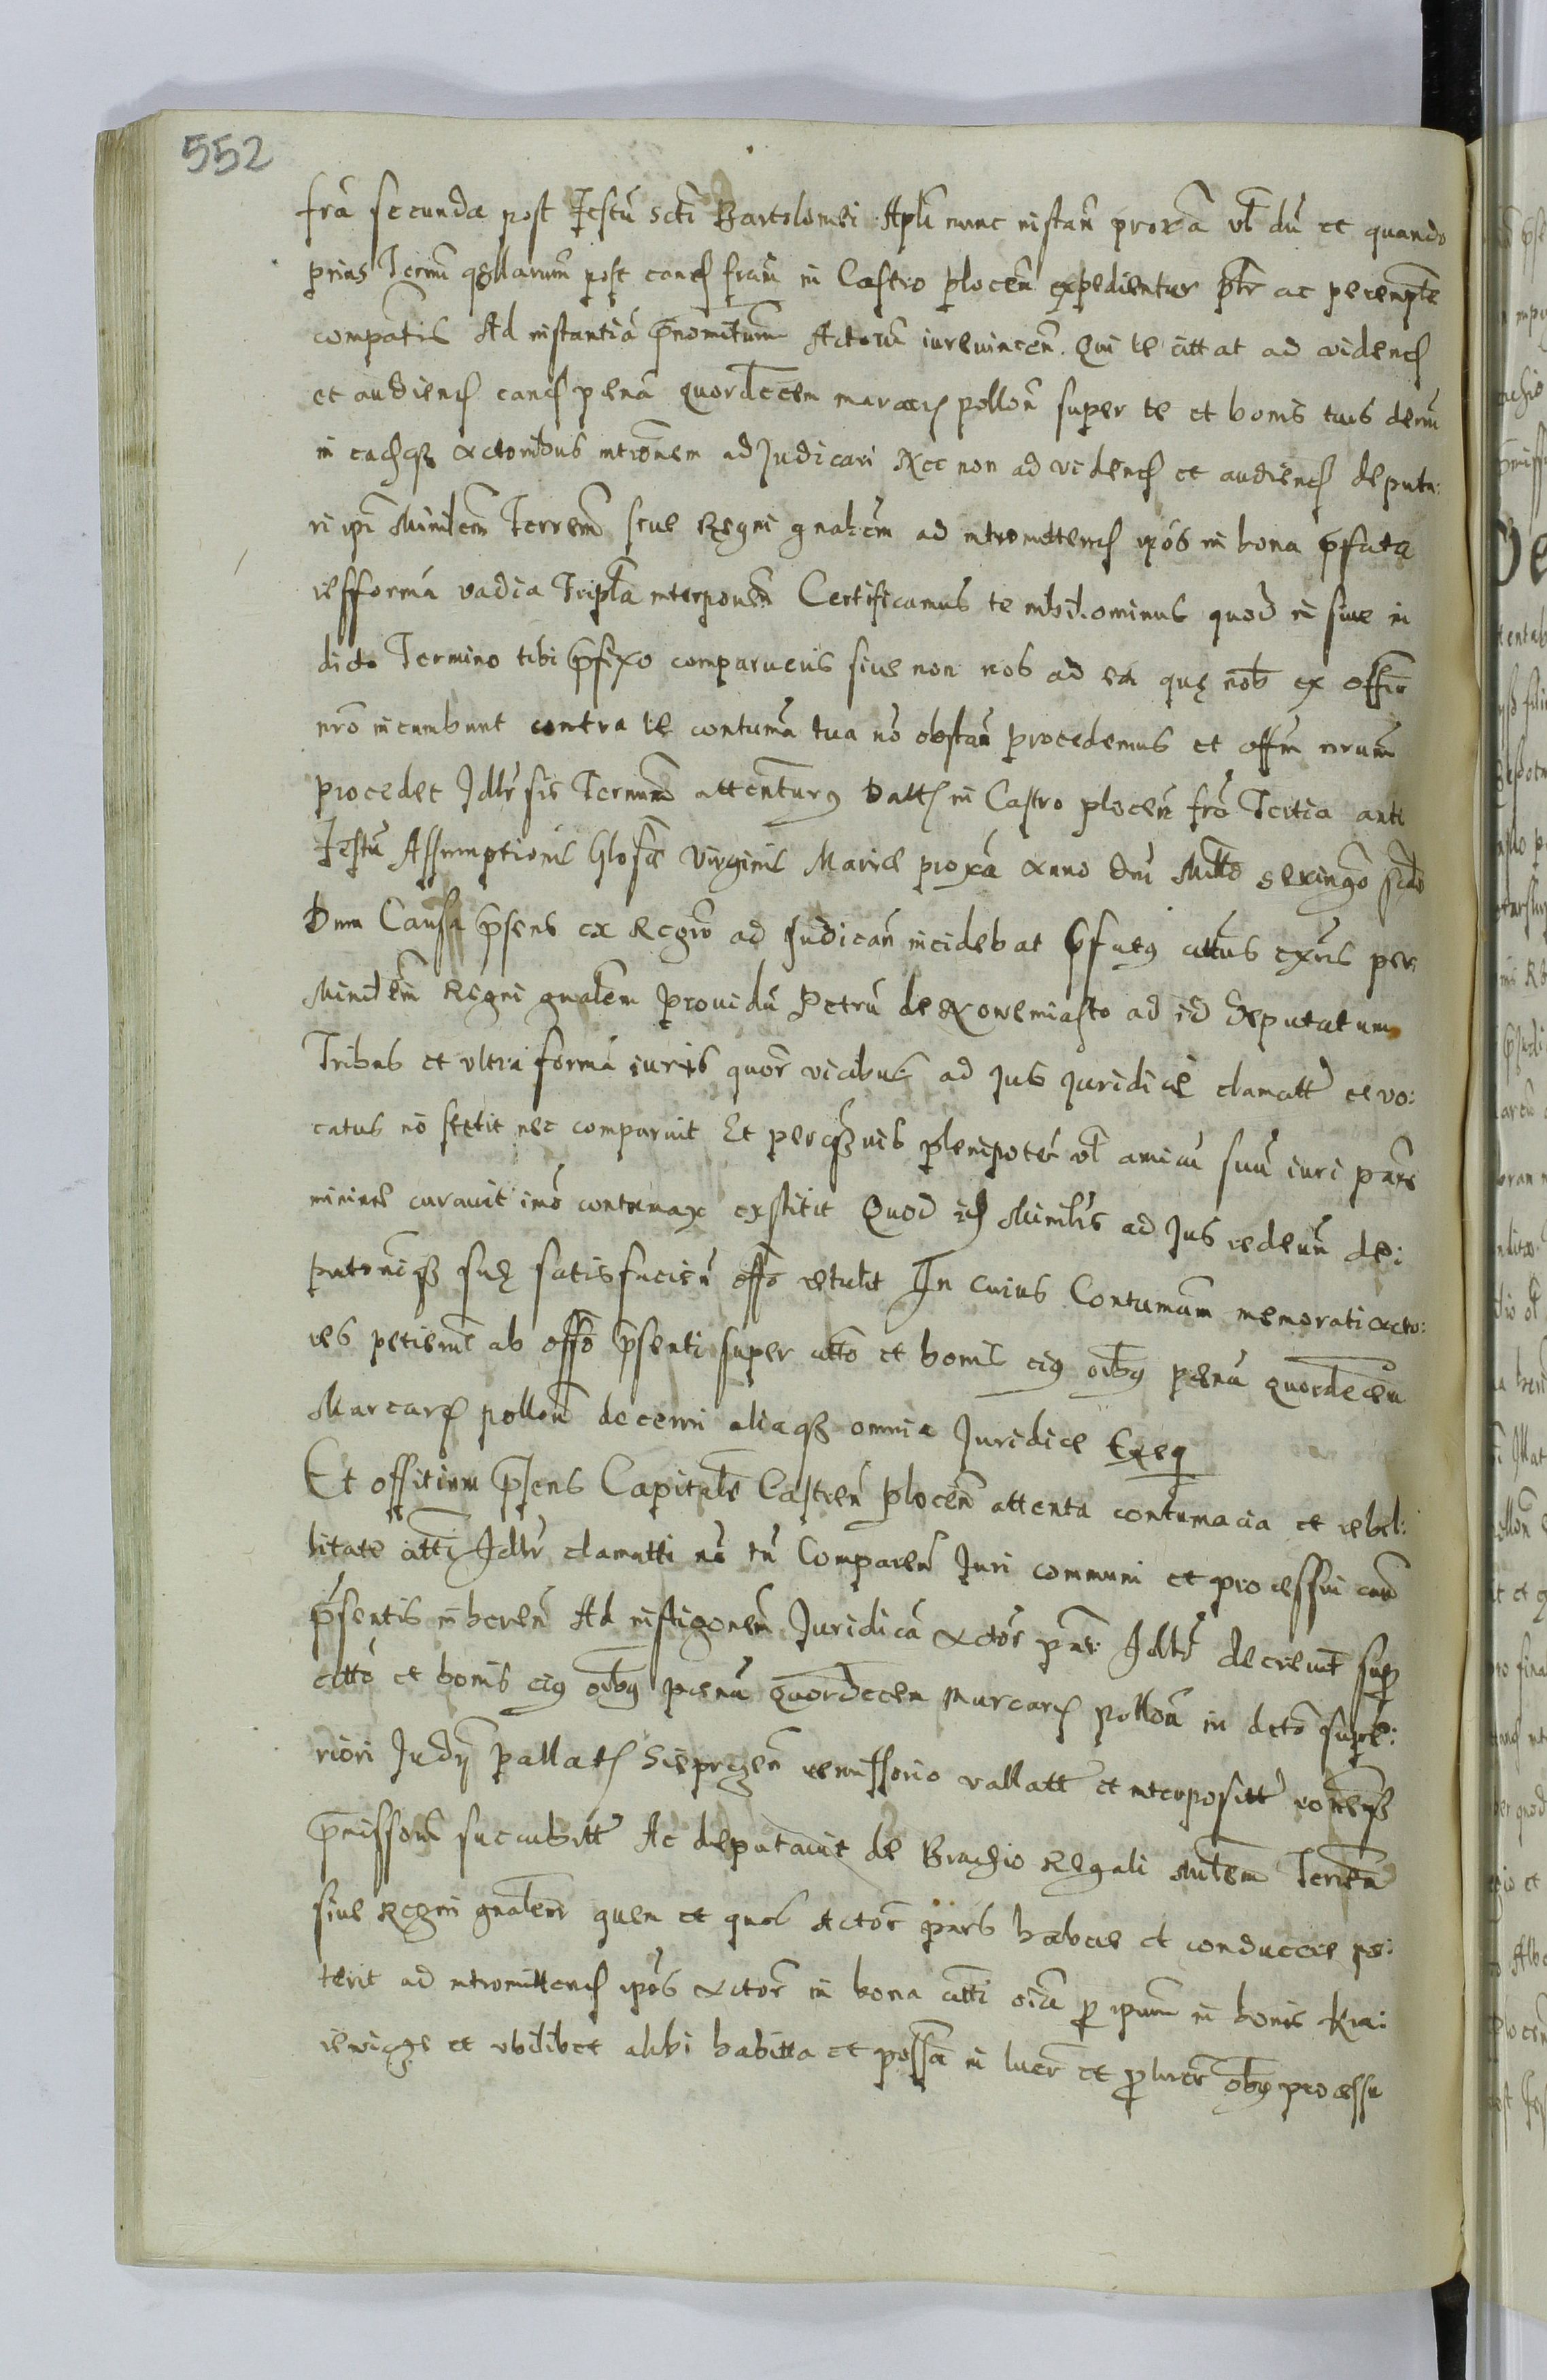 552
fra secunda post Festu Scti Bartolomei Apli nunc instan proxa vl du et quando
prius Termi qrllarum post eand fram in Castro plocen expedientur ptr ac perempte
compatis Ad instantia pnomitum Actoru iurevincen. Qui te cittat ad videnđ
et audienđ eanđ pena quordecem marcarꝶ pollon super te et bonis tuis decrni
in eadqȝ actoribus intronem adJudicari Nec non ad videnđ et audienđ deputa:
ri ipi Minilem Terrem seue Regni gnalem ad intromittenđ ipos in bona pfata
refforma vadia Tripla interponen Certificamus te nihilominus quod ei siue in
dicto Termino tibi pfixo comparueris siue non nos ad ea quę nob ex offio
nro incumbunt contra te contuma tua no obstan procedemus et offm nrum
procedet Idlr sis Terminu attenturus Datt in Castro plocen fra Tertia ante
Festu Assumptionis Glosae Virginis Mariae proxa anno Dni Millo sexingo scdo
Dum Causa psens ex Regro ad Judican incidebat pfatus cittus exns per
Minilem Regni gnalem prouidu Petru de Nowemiasto ad id deputatum
Tribus et vltra forma iuris quor vicibus ad Jus Juridice clamatt et vo:
catus no stetit nec comparuit Et per qȝvis plenipoten vl amicu suu iuri parre
minime curauit imo contumax exstitit Quod id Minilis ad Jus redeun de:
putoniqȝ suę satisfacien offo retulit In cuius Contumam memorati acto:
res petierunt ab offo psenti super citto et bonis eius oibus pena quordecem
Marcarꝶ pollon decerni aliaqȝ omnia Juridice Exeq
Et offitium psens Capitale Castren plocen attenta contumacia et rebel:
litate citti Idlr clamatti no tn Comparen Juri communi et processui cau
psentis inheren Ad instigonem Juridica Actor prae: Idlr decreuit sup
citto et bonis eius oibus pena quordecem Marcarꝶ pollon in dcto supe:
riori Judij pallatꝶ Sieprczen remissorio vallatt et interpositt roneqȝ
pmissorum succubitt Ac deputauit de Brachio Regali Milem Terren
siue Regni gnalem quem et quos Actor pars habere et conducere po:
terit ad intromittenđ ipos Actor in bona citti oia p ipum in bonis Kra:
iewicze et vbilibet alibi habitta et possa in lucr et plucr obus processu